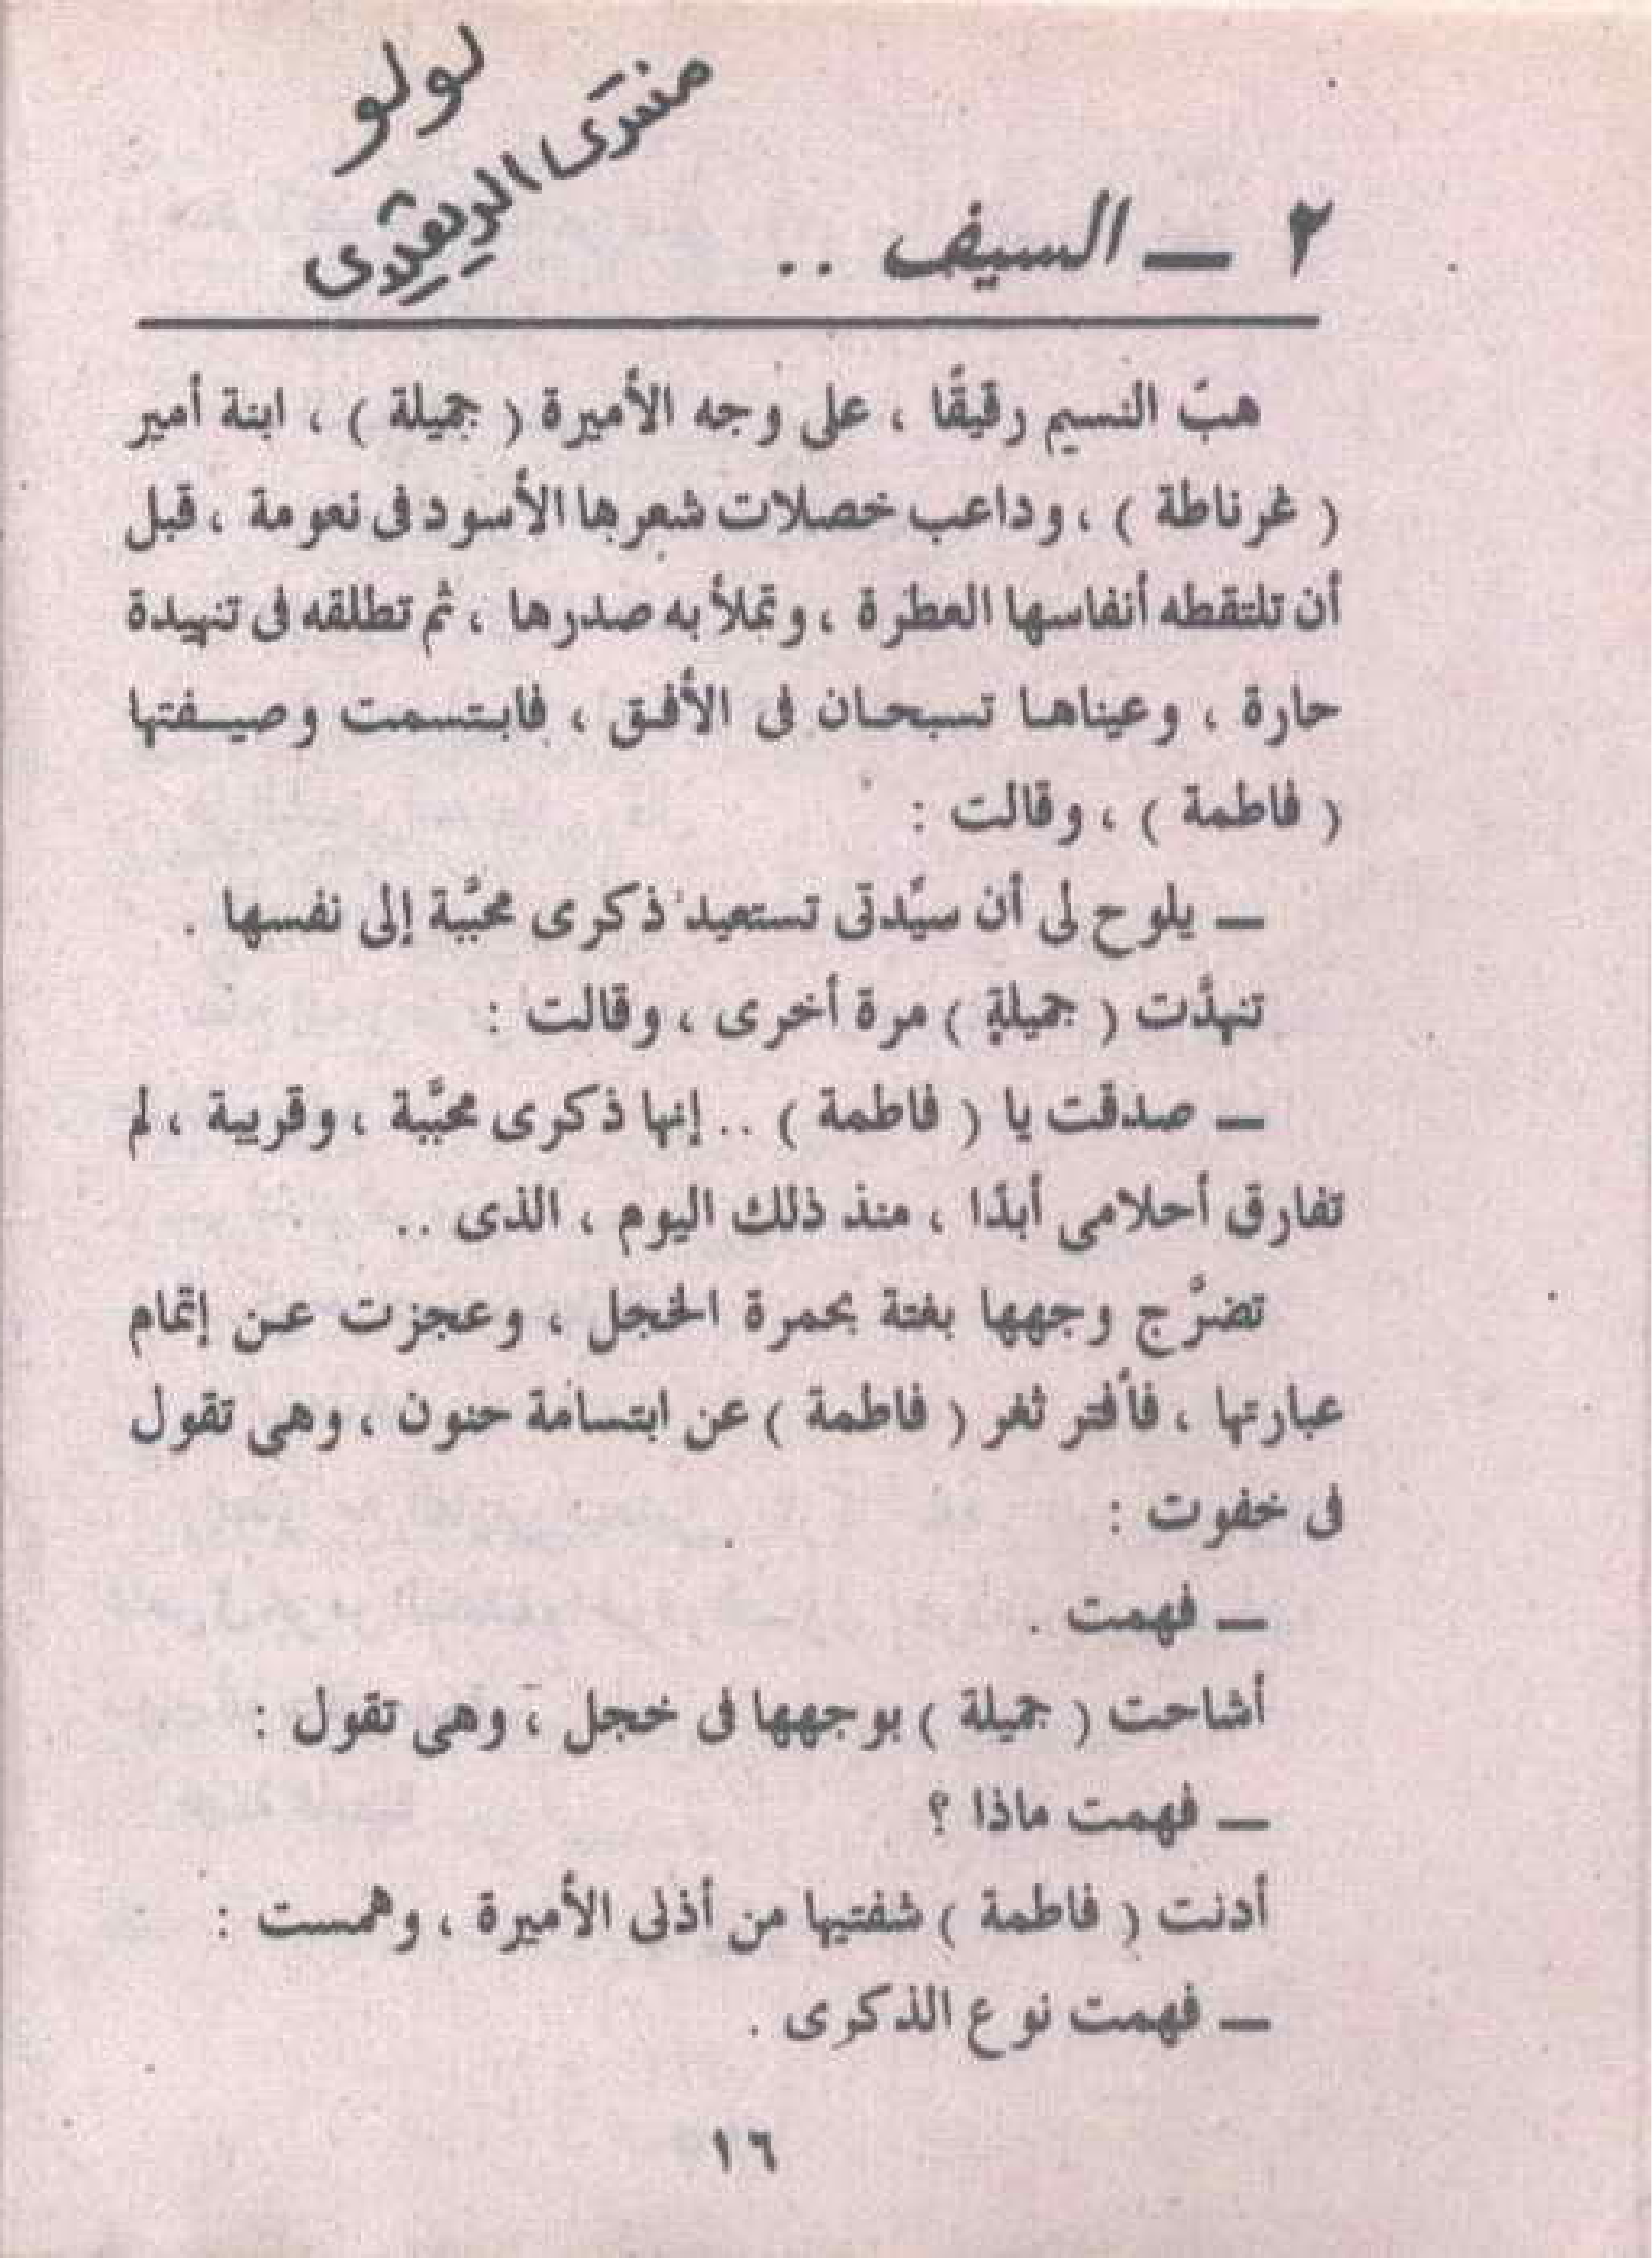 لولو
منتدى
٢ ــ السيف ..
هبّ النسيم رقيقًا ، على وجه الأميرة ( جميلة ) ، ابنة أمير
( غرناطة ) ، وداعب خصلات شعرها الأسود فى نعومة ، قبل
أن تلتقطه أنفاسها العطرة ، وتملأ به صدرها ، ثم تطلقه فى تنهيدة
حارة ، وعيناها تسبحان فى الأفق ، فابتسمت وصيفتها
( فاطمة ) ، وقالت :
ــ يلوح لى أن سيِّدتى تستعيد ذكرى محبَّبة إلى نفسها .
تنهدَّت ( جميلة ) مرة أخرى ، وقالت :
ــ صدقت يا ( فاطمة ) .. إنها ذكرى محبَّبة ، وقريبة ، لم
تفارق أحلامى أبدًا ، منذ ذلك اليوم ، الذى ..
تضرَّج وجهها بغتة بحمرة الخجل ، وعجزت عن إتمام
عبارتها ، فأفتر ثغر ( فاطمة ) عن ابتسامة حنون ، وهى تقول
فى خفوت :
ــ فهمت .
أشاحت ( جميلة ) بوجهها فى خجل ، وهى تقول :
ــ فهمت ماذا ؟
أدنت ( فاطمة ) شفتيها من أذنى الأميرة ، وهمست :
ــ فهمت نوع الذكرى .
١٦